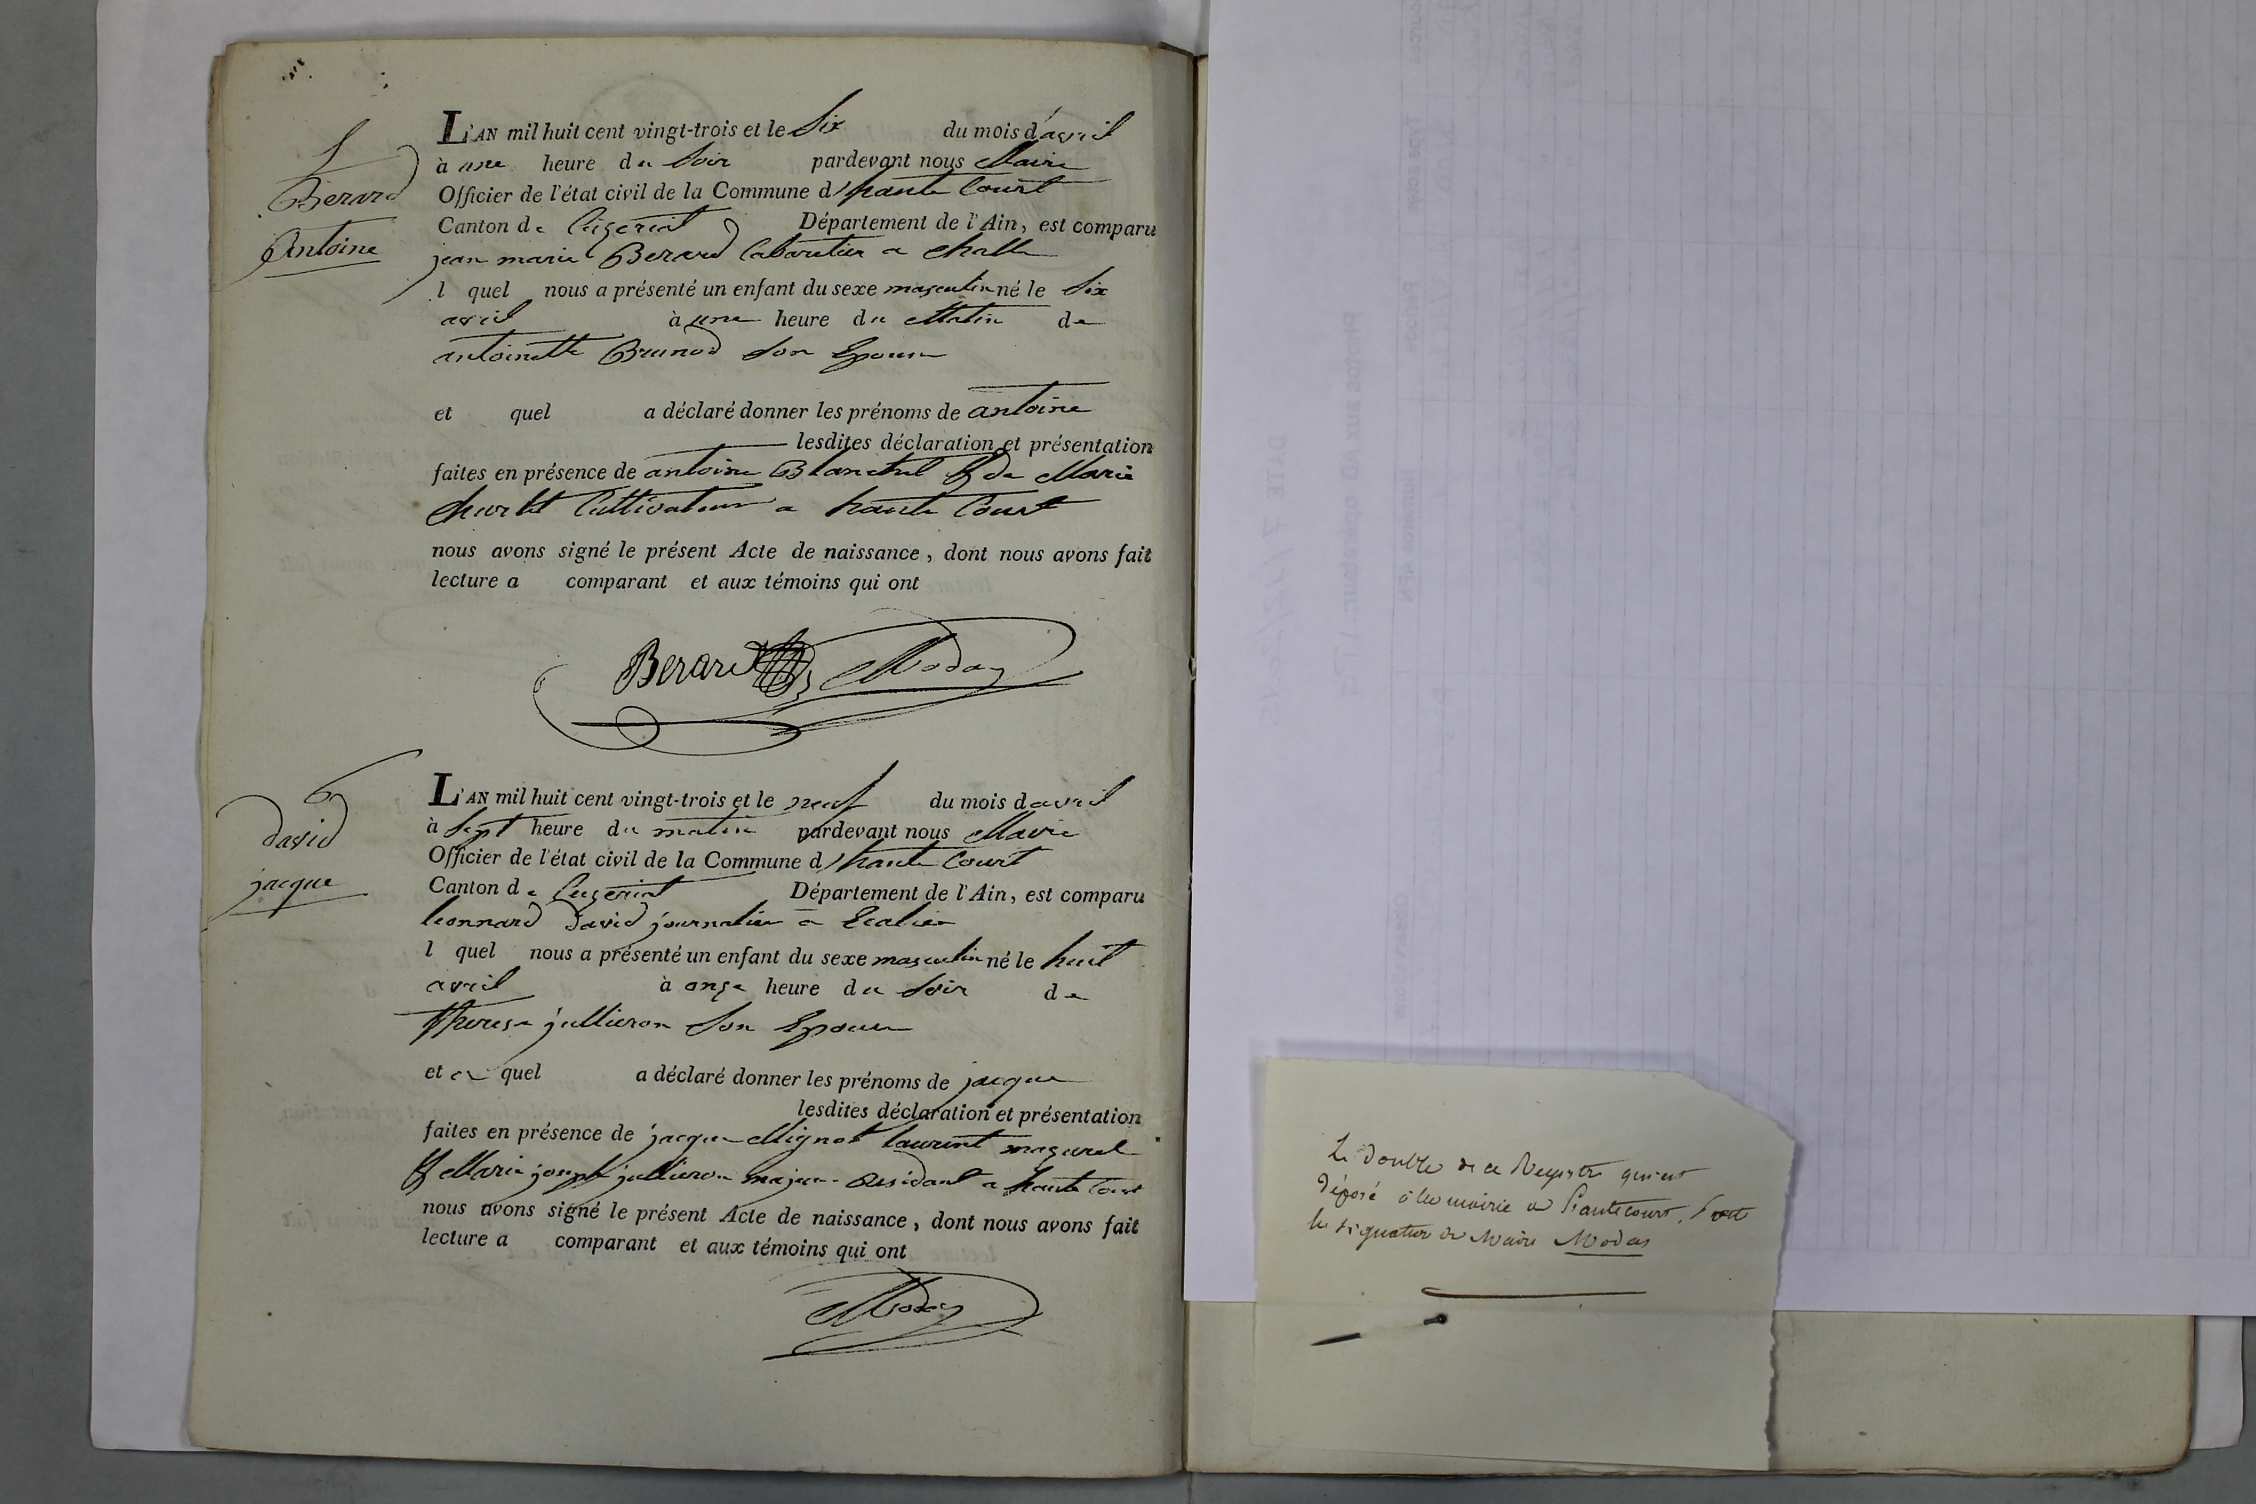 5
Berard
Antoine
L'AN mil huit cent vingt-trois et le Six du mois d'avril
à une heure du Soir pardevant nous Maire
Officier de l'état civil de la Commune d'haute Court
Canton de Ceyzeriat Département de l'Ain, est comparu
jean marie Berard Cabaretier a Challe
l quel nous a présenté un enfant du sexe masculin né le Six
avril à une heure du Matin de
antoinette Brunod Son Epouse
et quel a déclaré donner les prénoms de antoine
lesdites déclaration et présentation
faites en présence de antoine Blanchet & de Marie
Charlet Cultivateur a haute Court
nous avons signé le présent Acte de naissance, dont nous avons fait
lecture a comparant et aux témoins qui ont
Berard Modas
6
david
jacque
L'AN mil huit cent vingt-trois et le neuf du mois d avril
à Sept heure du matin pardevant nous Maire
Officier de l'état civil de la Commune d'haute Court
Canton de Ceyzeriat Département de l'Ain, est comparu
leonnard david journalier a
l quel nous a présenté un enfant du sexe masculin né le huit
avril à onze heure du Soir de
therese jullieron Son Epouse
et quel a déclaré donner les prénoms de jacque
lesdites déclaration et présentation
faites en présence de jacque Mignot laurent
& Marie joseph jullieron majeur Residant a haute Court
nous avons signé le présent Acte de naissance, dont nous avons fait
lecture a comparant et aux témoins qui ont
Modas
Le Double de ce Registre qui est
déposé à la mairie de hautecourt, porte
la signature du Maire Modas